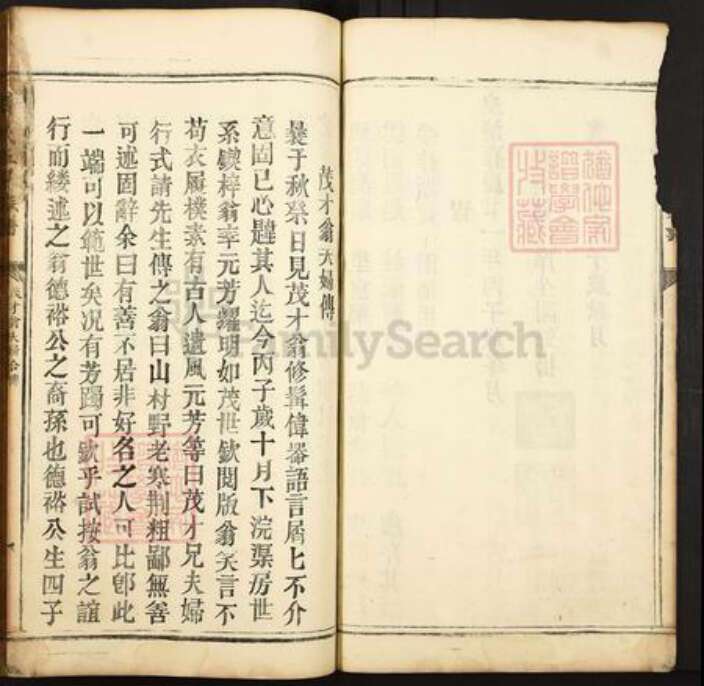 茂才翁夫婦傳
曩于秋祭日見茂才翁修髯偉器語言屑七不介
意固已心韙其人迄今丙子歲十月下浣渠房世
系鋟梓翁率元芳耀明如茂世欽閱版翁笑言不
苟衣履樸素有古人遺風元芳等曰茂才兄夫婦
行式請先生傳之翁曰山村野老寒荆粗鄙無善
可述固辭余曰有善不居非好名之人可比卽此
一端可以範世矣况有芳躅可欽乎試按翁之誼
行而縷述之翁德裕公之裔孫也德裕公生四子
茂才翁夫婦合傳
譜學會
特藏
FamilySearch